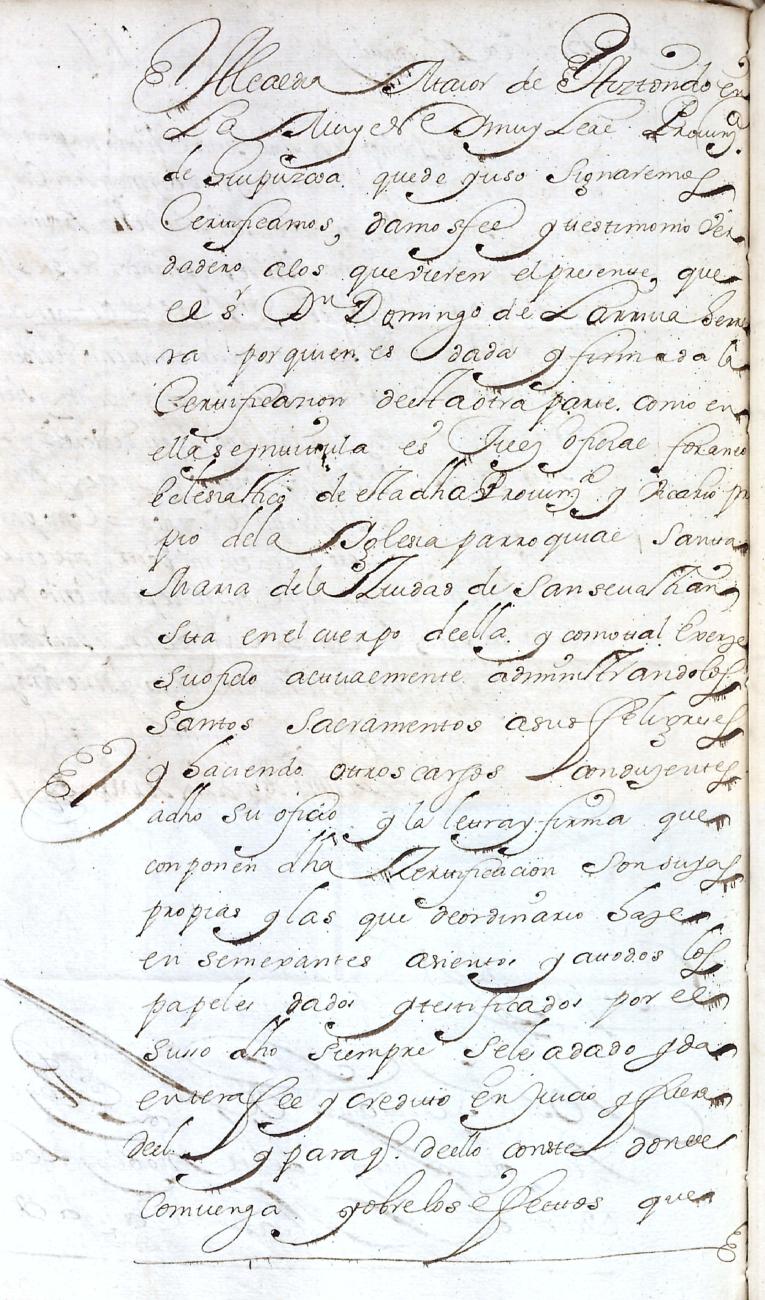 Alcaldia Maior de Aiztondo en
La Muy N.e y muy Leal Prouin.a
de Guipuzcoa que de yuso signaremos
Certificamos, damos fee y testimonio ver
dadero alos que vieren el presente, que
el s.r D.n Domingo de Larriua Herre
ra por quien es dada y firmada la
Certificacion de esta otra parte como en
ella se yntitula es Juez oficial foraneo
eclesiastico de esta dha Prouin.a y Vicario pro
pio de la Yglesia parroquial Santa
Maria de la Ziudad de San seuastian,
sita en el cuerpo de ella y como tal exerze
su oficio actualmente administrando los
santos sacramentos a sus feligreses
y haciendo ottros cargos condujentes
a dho su oficio y la letra y firma que
conponen dha Zertificacion son suyas
propias y las que de ordinario haze
en semexantes asientos y a todos los
papeles dados y testificados por el
suso dho siempre se les a dado y da
entera fee y credito en juicio y fuera
del y para q. de ello conste donde
Comuenga y obre los effectos que